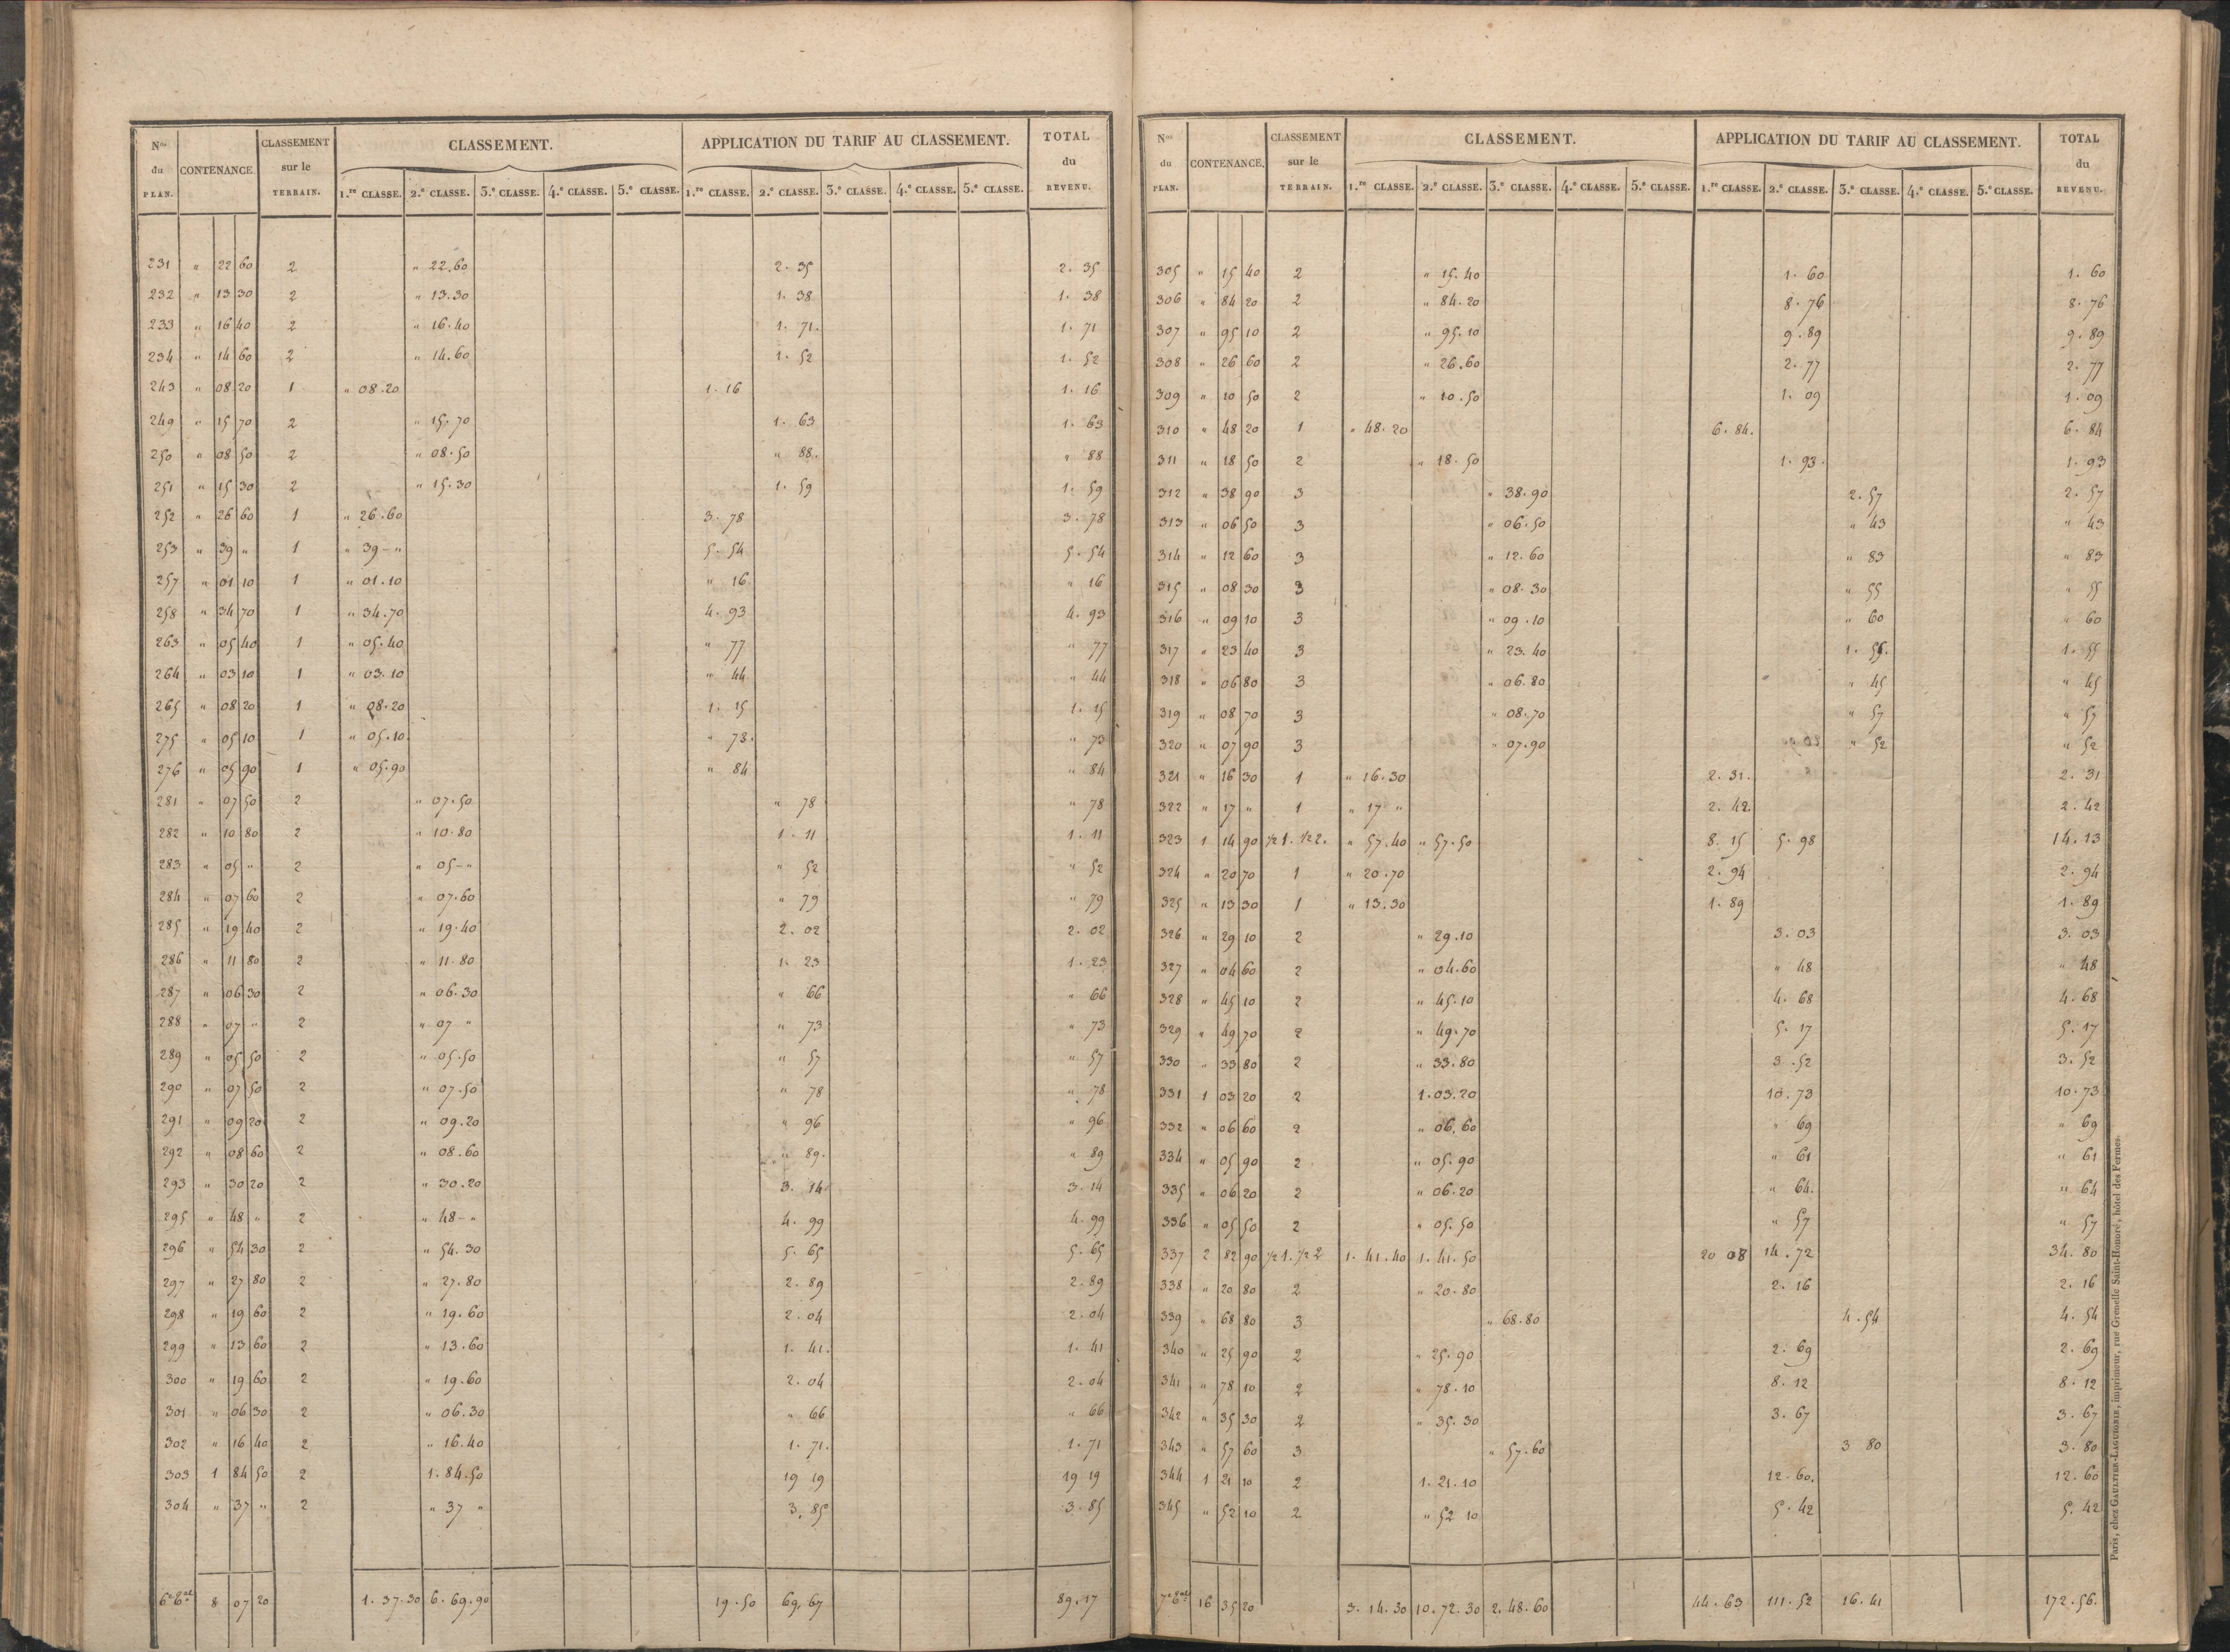 Nos du PLAN. CONTENANCE. CLASSEMENT sur le TERRAIN. CLASSEMENT. APPLICATION DU TARIF AU CLASSEMENT. TOTAL du REVENU.
1.re CLASSE. 2.e CLASSE. 3.e CLASSE. 4.e CLASSE. 5.e CLASSE. 1.re CLASSE. 2.e CLASSE. 3.e CLASSE. 4.e CLASSE. 5.e CLASSE.
231 " 22 60 2 " 22.60 2. 35 2. 35
232 " 13 30 2 " 13.30 1. 38 1. 38
233 " 16 40 2 " 16.40 1. 71. 1. 71
234 " 14 60 2 " 14.60 1. 52 1. 52
243 " 08 20 1 " 08.20 1. 16 1. 16
249 " 15 70 2 " 15.70 1. 63 1. 63
250 " 08 50 2 " 08.50 " 88. " 88
251 " 15 30 2 " 15.30 1. 59 1. 59
252 " 26 60 1 " 26.60 3. 78 3. 78
253 " 39 " 1 " 39-" 5. 54 5. 54
257 " 01 10 1 " 01.10 " 16. " 16
258 " 34 70 1 " 34.70 4. 93 4. 93
263 " 05 40 1 " 05.40 " 77 " 77
264 " 03 10 1 " 03.10 " 44 " 44
265 " 08 20 1 " 08.20 1. 15 1. 15
275 " 05 10 1 " 05.10 " 73. " 73
276 " 05 90 1 " 05.90 " 84 " 84
281 " 07 50 2 " 07.50 " 78 " 78
282 " 10 80 2 " 10.80 1. 11 1. 11
283 " 05 " 2 " 05-" " 52 " 52
284 " 07 60 2 " 07.60 " 79 " 79
285 " 19 40 2 " 19.40 2. 02 2. 02
286 " 11 80 2 " 11.80 1. 23 1. 23
287 " 06 30 2 " 06.30 " 66 " 66
288 " 07 " 2 " 07 " " 73 " 73
289 " 05 50 2 " 05.50 " 57 " 57
290 " 07 50 2 " 07.50 " 78 " 78
291 " 09 20 2 " 09.20 " 96 " 96
292 " 08 60 2 " 08.60 " 89. " 89
293 " 30 20 2 " 30.20 3. 14 3. 14
295 " 48 " 2 " 48-" 4. 99 4. 99
296 " 54 30 2 " 54.30 5. 65 5. 65
297 " 27 80 2 " 27.80 2. 89 2. 89
298 " 19 60 2 " 19.60 2. 04 2. 04
299 " 13 60 2 " 13.60 1. 41. 1. 41
300 " 19 60 2 " 19.60 2. 04 2. 04
301 " 06 30 2 " 06.30 " 66 " 66
302 " 16 40 2 " 16.40 1. 71. 1. 71
303 1 84 50 2 1. 84.50 19 19 19 19
304 " 37 " 2 " 37 " 3. 85 3. 85
8 07 20 1. 37.30 6. 69.90 19.50 69,67 89.17
Nos du PLAN. CONTENANCE. CLASSEMENT sur le TERRAIN. CLASSEMENT. APPLICATION DU TARIF AU CLASSEMENT. TOTAL du REVENU.
1.re CLASSE. 2.e CLASSE. 3.e CLASSE. 4.e CLASSE. 5.e CLASSE. 1.re CLASSE. 2.e CLASSE. 3.e CLASSE. 4.e CLASSE. 5.e CLASSE.
305 " 15 40 2 " 15.40 1. 60 1. 60
306 " 84 20 2 " 84.20 8. 76 8. 76
307 " 95 10 2 " 95.10 9. 89 9. 89
308 " 26 60 2 " 26.60 2. 77 2. 77
309 " 10 50 2 " 10.50 1. 09 1. 09
310 " 48 20 1 " 48.20 6. 84. 6. 84
311 " 18 50 2 " 18.50 1. 93. 1. 93
312 " 38 90 3 " 38.90 2. 57 2. 57
313 " 06 50 3 " 06.50 " 43 " 43
314 " 12 60 3 " 12.60 " 83 " 83
315 " 08 30 3 " 08.30 " 55 " 55
316 " 09 10 3 " 09.10 " 60 " 60
317 " 23 40 3 " 23.40 1. 55. 1. 55
318 " 06 80 3 " 06.80 " 45 " 45
319 " 08 70 3 " 08.70 " 57 " 57
320 " 07 90 3 " 07.90 " 52 " 52
321 " 16 30 1 " 16.30 2. 31. 2. 31
322 " 17 " 1 " 17 " 2. 42. 2. 42
323 1 14 90 1/2 1. 1/2 2. " 57.40 " 57.50 8. 15 5. 98 14. 13
324 " 20 70 1 " 20.70 2. 94 2. 94
325 " 13 30 1 " 13.30 1. 89 1. 89
326 " 29 10 2 " 29.10 3. 03 3. 03
327 " 04 60 2 " 04.60 " 48 " 48
328 " 45 10 2 " 45.10 4. 68 4. 68
329 " 49 70 2 " 49.70 5. 17 5. 17
330 " 33 80 2 " 33.80 3. 52 3. 52
331 1 03 20 2 1.03.20 10. 73 10. 73
332 " 06 60 2 " 06.60 " 69 " 69
334 " 05 90 2 " 05.90 " 61 " 61
335 " 06 20 2 " 06.20 " 64. " 64
336 " 05 50 2 " 05.50 " 57 " 57
337 2 82 90 1/2 1. 1/2 2 1. 41.40 1. 41.50 20 08 14. 72 34. 80
338 " 20 80 2 " 20.80 2. 16 2. 16
339 " 68 80 3 " 68.80 4. 54 4. 54
340 " 25 90 2 " 25.90 2. 69 2. 69
341 " 78 10 2 " 78.10 8. 12 8. 12
342 " 35 30 2 " 35.30 3. 67 3. 67
343 " 57 60 3 " 57.60 3 80 3. 80
344 1 21 10 2 1. 21.10 12. 60. 12. 60
345 " 52 10 2 " 52 10 5. 42 5. 42
16 35 20 3. 14.30 10. 72.30 2. 48.60 44. 63 111. 52 16. 41 172. 56.
Paris, chez GAULTIER-LAGUIONIE, imprimeur, rue Grenelle Saint-Honoré, hôtel des Fermes.